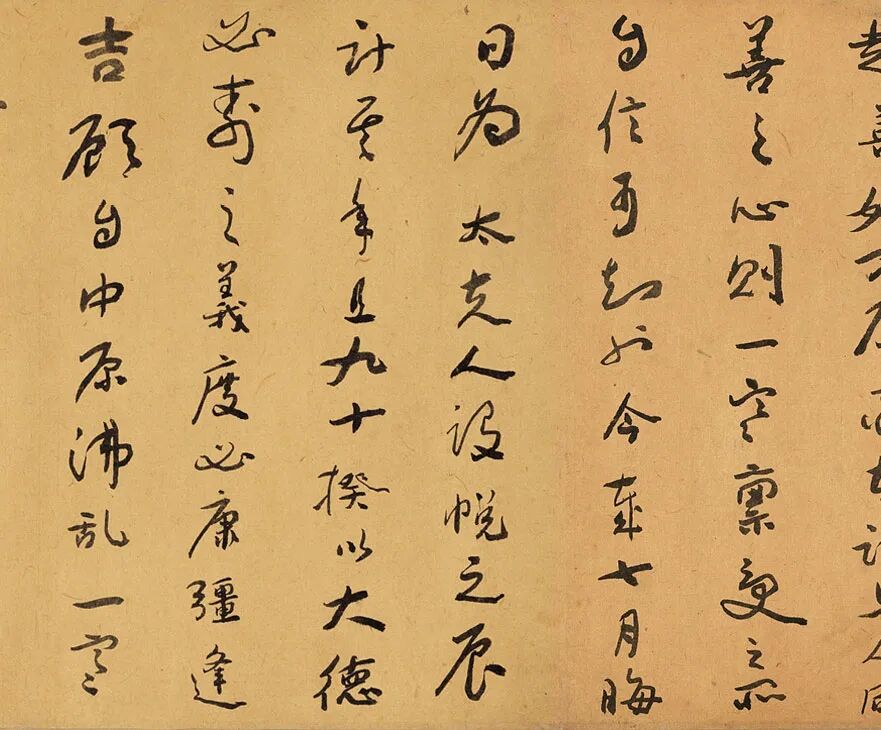 善之心則一家禀受之所
自信可知今歲七月晦
日為太夫人設帨之辰
計其年且九十揆以大德
必壽之義度必康彊逢
吉顧自中原沸乱一家